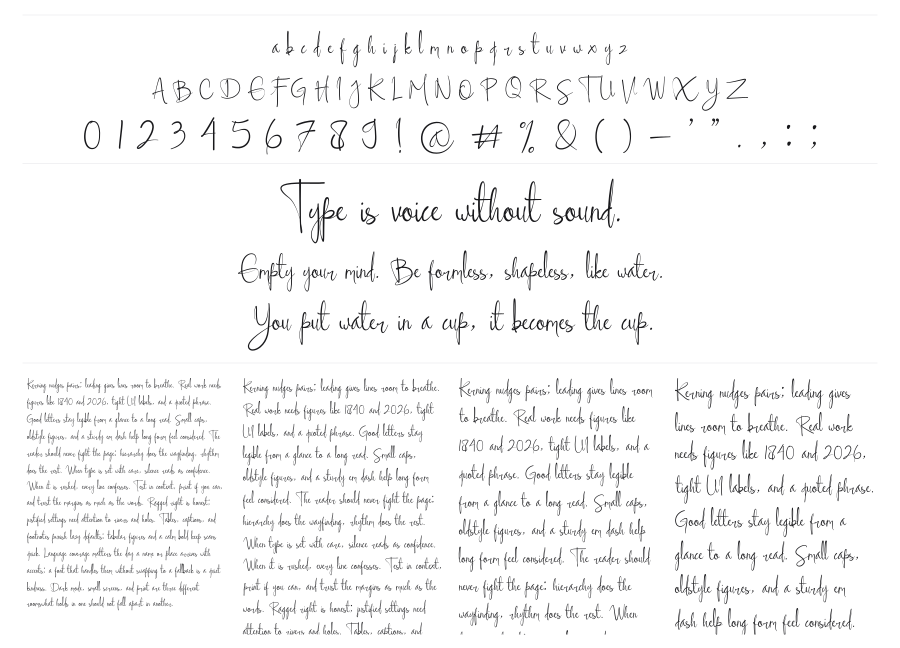 a b c d e f g h i j k l m n o p q r s t u v w x y z
A B C D E F G H I J K L M N O P Q R S T U V W X Y Z
0 1 2 3 4 5 6 7 8 9 ! @ # % & ( ) – ' " . , : ;
Type is voice without sound.
Empty your mind. Be formless, shapeless, like water.
You put water in a cup, it becomes the cup.
Kerning nudges pairs; leading gives lines room to breathe. Real work needs
figures like 1840 and 2026, tight UI labels, and a quoted phrase.
Good letters stay legible from a glance to a long read. Small caps,
oldstyle figures, and a sturdy em dash help long form feel considered. The
reader should never fight the page; hierarchy does the wayfinding, rhythm
does the rest. When type is set with care, silence reads as confidence.
When it is rushed, every line confesses. Test in context, print if you can,
and trust the margins as much as the words. Ragged right is honest; justified settings need attention to rivers and holes. Tables, captions, and
footnotes punish lazy defaults; tabular figures and a calm bold keep scans
quick. Language coverage matters the day a name or place arrives with
accents; a font that handles them without swapping to a fallback is a quiet
kindness. Dark mode, small screens, and print are three different
rooms; what holds in one should not fall apart in another.
Kerning nudges pairs; leading gives lines room to breathe.
Real work needs figures like 1840 and 2026, tight
UI labels, and a quoted phrase. Good letters stay
legible from a glance to a long read. Small caps,
oldstyle figures, and a sturdy em dash help long form
feel considered. The reader should never fight the page;
hierarchy does the wayfinding, rhythm does the rest.
When type is set with care, silence reads as confidence.
When it is rushed, every line confesses. Test in context,
print if you can, and trust the margins as much as the
words. Ragged right is honest; justified settings need
attention to rivers and holes. Tables, captions, and
Kerning nudges pairs; leading gives lines room
to breathe. Real work needs figures like
1840 and 2026, tight UI labels, and a
quoted phrase. Good letters stay legible
from a glance to a long read. Small caps,
oldstyle figures, and a sturdy em dash help
long form feel considered. The reader should
never fight the page; hierarchy does the
wayfinding, rhythm does the rest. When
Kerning nudges pairs; leading gives
lines room to breathe. Real work
needs figures like 1840 and 2026,
tight UI labels, and a quoted phrase.
Good letters stay legible from a
glance to a long read. Small caps,
oldstyle figures, and a sturdy em
dash help long form feel considered.